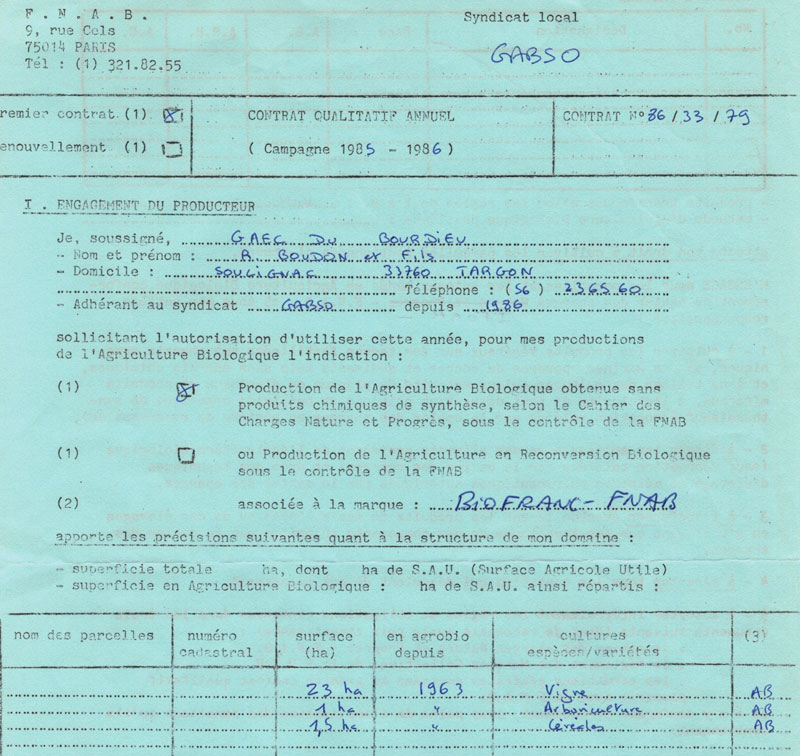 F . N . A . B .
9, rue Cels
75014 PARIS
Tél : (1) 321.82.55
Syndicat local
GABSO
remier contrat (1) ☒
enouvellement (1) ☐
CONTRAT QUALITATIF ANNUEL
( Campagne 1985 - 1986 )
CONTRAT N° 86 / 33 / 79
I . ENGAGEMENT DU PRODUCTEUR
Je, soussigné, GAEC DU BOURDIEU
- Nom et prénom : R. BOUDON et Fils
- Domicile : SOULIGNAC 33760 TARGON
Téléphone : (56 ) 236560
- Adhérant au syndicat GABSO depuis 1986
sollicitant l'autorisation d'utiliser cette année, pour mes productions
de l'Agriculture Biologique l'indication :
(1) ☒ Production de l'Agriculture Biologique obtenue sans
produits chimiques de synthèse, selon le Cahier des
Charges Nature et Progrès, sous le contrôle de la FNAB
(1) ☐ ou Production de l'Agriculture en Reconversion Biologique
sous le contrôle de la FNAB
(2) associée à la marque : BIOFRANC - FNAB
apporte les précisions suivantes quant à la structure de mon domaine :
- superficie totale ha, dont ha de S.A.U. (Surface Agricole Utile)
- superficie en Agriculture Biologique : ha de S.A.U. ainsi répartis :
nom des parcelles numéro cadastral surface (ha) en agrobio depuis cultures espèces/variétés (3)
23 ha 1963 Vigne AB
1 ha " Arboriculture AB
1,5 ha " Céréales AB